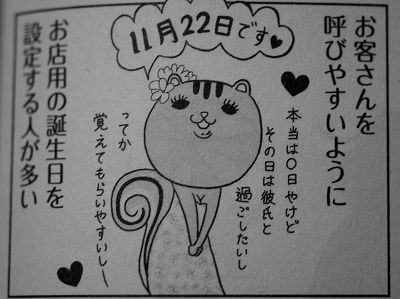 お客さんを
呼びやすいように
11月22日です♥
本当は〇日やけど
その日は彼氏と
過ごしたいし
ってか
覚えてもらいやすいしー
お店用の誕生日を
設定する人が多い